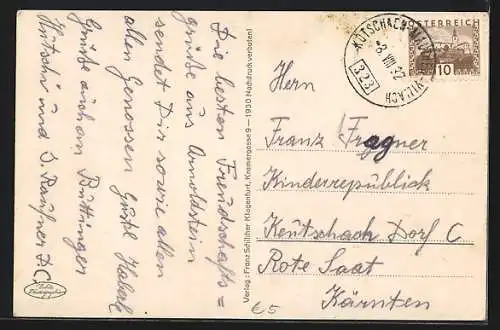 Die besten Freundschafts=
grüße aus Arnoldstein
sendet Dir sowie allen
allen Genossen Gustl Haberl
Grüße auch an Büttinger
Hütschi und
Verlag: Franz Schilcher Klagenfurt, Kramergasse 9 — 1930 Nachdruck verboten!
KÖTSCHACH-MAUTHEN-VILLACH
8 VIII 32
323
ÖSTERREICH
10
Hern
Franz Fragner
Kinderrepublick
Keutschach Dorf C
Rote Saat
Kärnten
€5
Echte